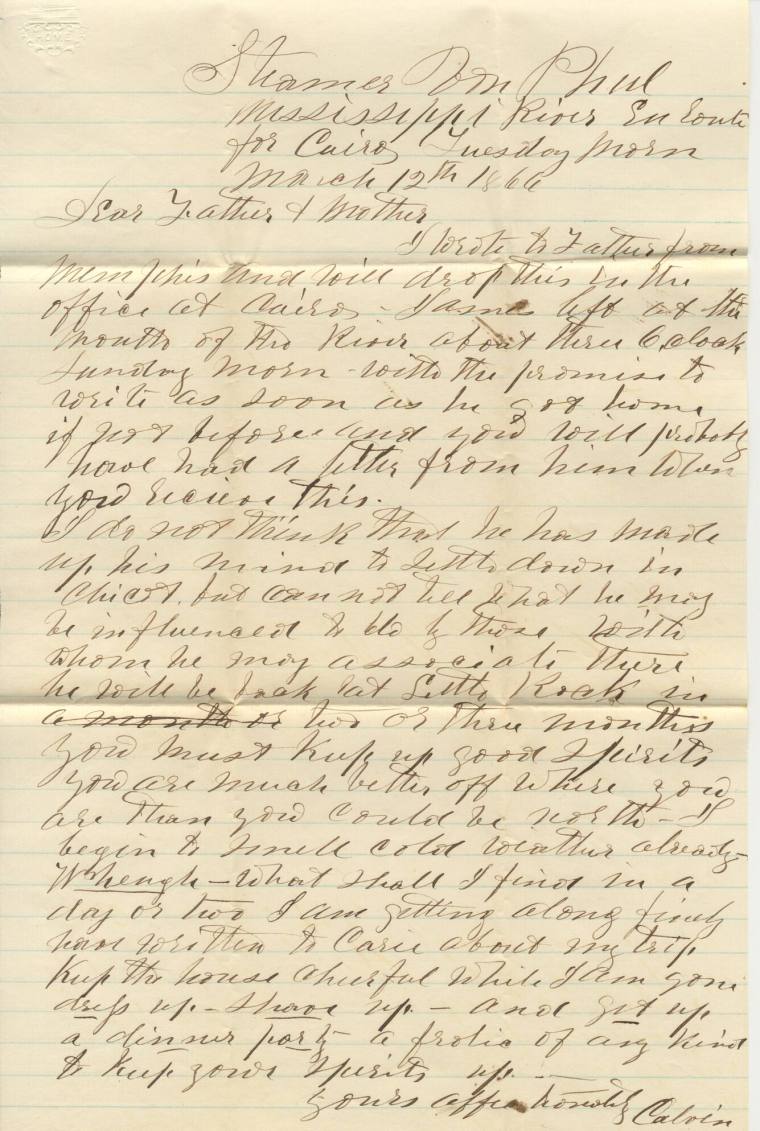 Steamer Von Phul
Mississippi River En Route
for Cairo Tuesday Morn
March 12th 1866
Dear Father & Mother
I wrote to Father from
Memphis and will drop this in the
office at Cairo - James left at the
mouth of the River about three O,clock
Sunday Morn - with the promise to
write as soon as he got home
if not before and you will probably
have had a letter from him when
you recieve this.
I do not think that he has made
up his mind to settle down in
Chicot, but can not tell what he may
be influenced to do by those with
whom he may associate there
he will be back at Little Rock in
a month or two or three months
You must Keep up good spirits
you are much better off where you
are than you could be north - I
begin to smell cold weather already -
Wheugh - What shall I find in a
day or two I am getting along finely
have written to Carie about my trip
Keep the house cheerful while I am gone
dress up - shave up - and get up
a dinner party a frolic of any Kind
to Keep your spirits up -
yours affectionately Calvin